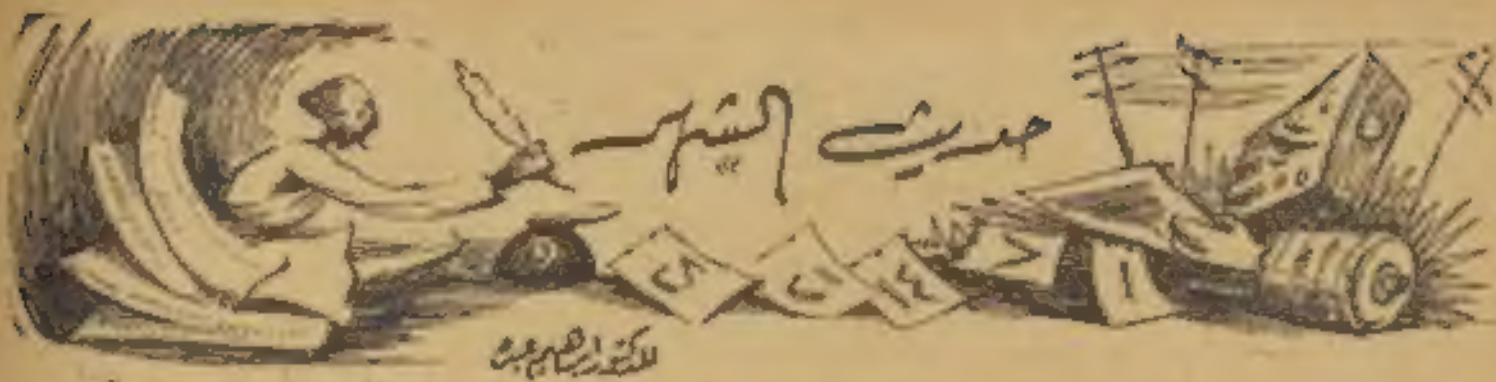 حديث الشهر
١ ٧ ١٤ ٢١ ٢٨
للدكتور ابراهيم عبده